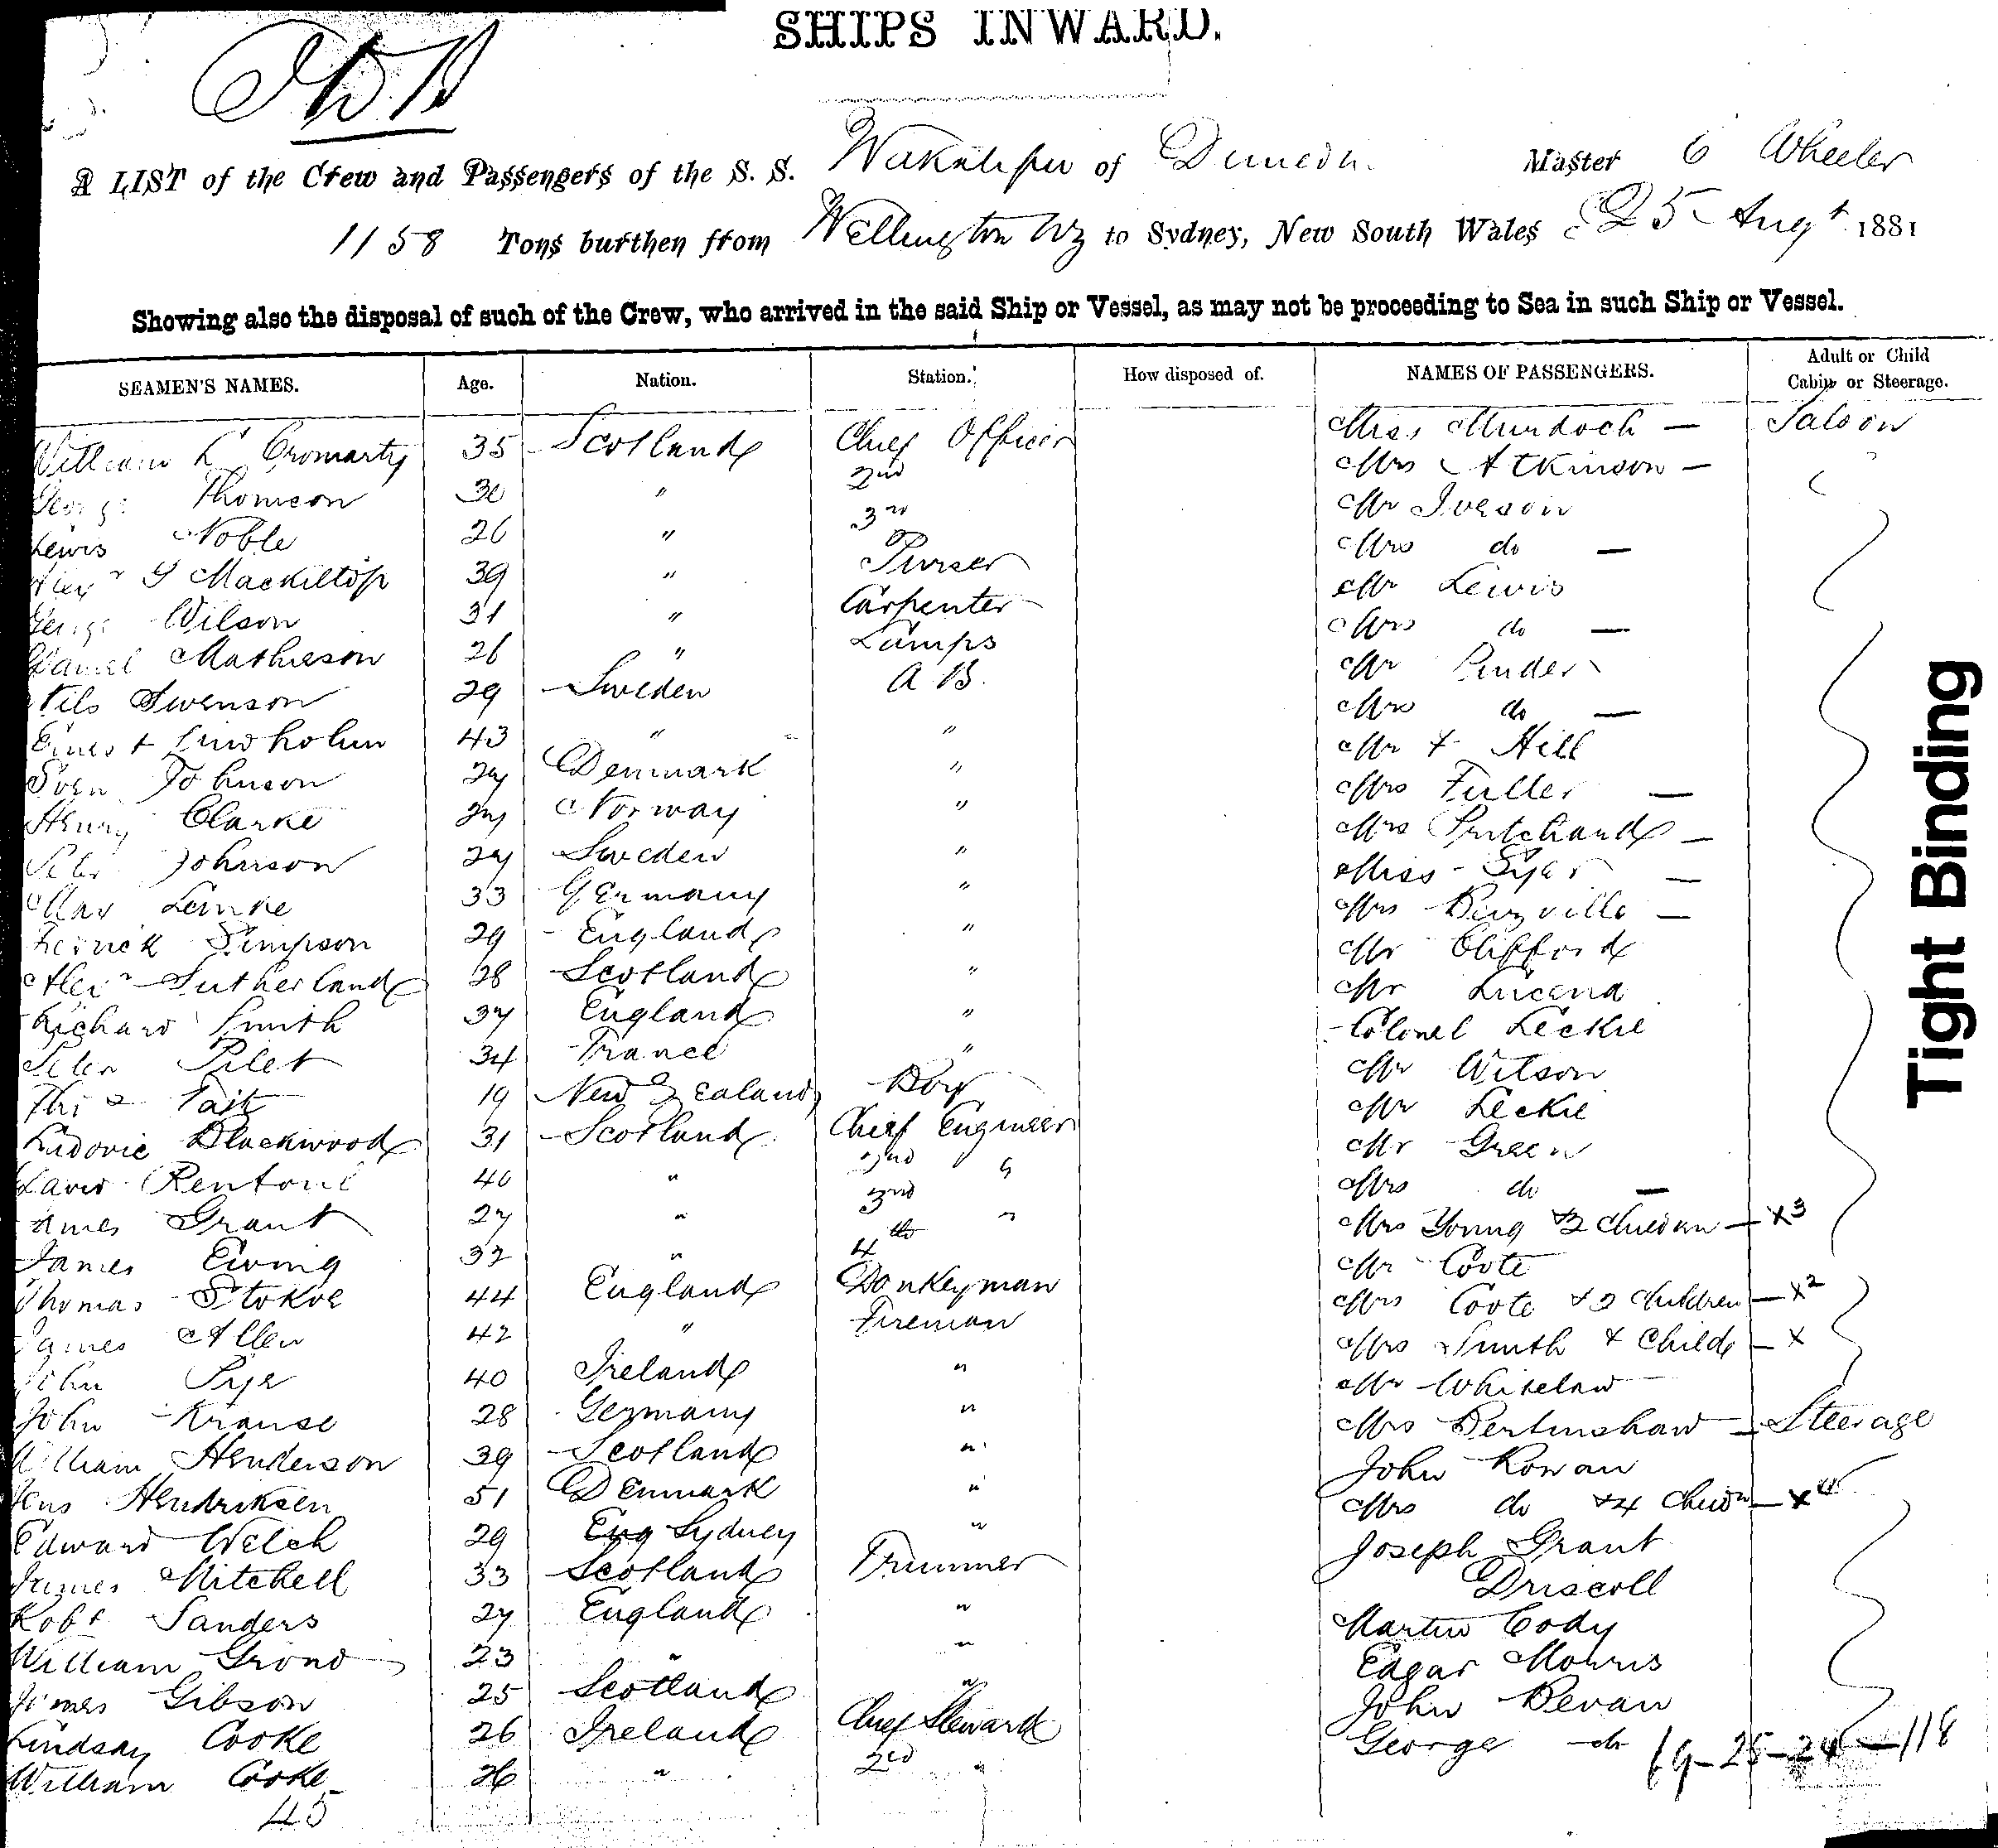 SHIPS INWARD.
A LIST of the Crew and Passengers of the S. S. Wakatipu of Dunedin Master C Wheeler
1158 Tons burthen from Wellington NZ to Sydney, New South Wales 25 Augt 1881
Showing also the disposal of such of the Crew, who arrived in the said Ship or Vessel, as may not be proceeding to Sea in such Ship or Vessel.
SEAMEN'S NAMES. Age. Nation. Station. How disposed of. NAMES OF PASSENGERS. Adult or Child Cabin or Steerage.
William Cromarty 35 Scotland Chief Officer Miss Murdoch — Saloon
George Thomson 30 " 2nd Mrs Atkinson —
Lewis Noble 26 " 3rd Mr Iveson
Alexr G Mackillop 39 " Purser Mrs do —
George Wilson 31 " Carpenter Mr Lewis
Daniel Mathieson 26 " Lamps Mrs do —
Nils Swenson 29 Sweden A.B. Mr Pinder
43 " " Mrs do —
Sven Johnson 27 Denmark " Mr F Hill
Henry Clarke 27 Norway " Mrs Fuller —
Peter Johnson 27 Sweden " Mrs Pritchard —
Max Lemke 33 Germany " Miss —
Simpson 29 England " Mrs —
Alexr Sutherland 28 Scotland " Mr Clifford
Richard Smith 37 England " Mr Lucena
Peter Pilet 34 France " Colonel Leckie
Thos Tait 19 New Zealand Boy Mr Wilson
Ludovic Blackwood 31 Scotland Chief Engineer Mr Leckie
David Rentoul 40 " 2nd " Mr Green
James Grant 27 " 3rd " Mrs do —
James Ewing 32 " 4th Mrs Young & 2 children — x3
Thomas Stokoe 44 England Donkeyman Mr Coote
James Allen 42 " Fireman Mrs Coote & 2 children — x2
John Pye 40 Ireland " Mrs Smith & Child — x
John Krause 28 Germany " Mr Whitelaw
William Henderson 39 Scotland " Mrs Bertinshaw — Steerage
Jens Hendriksen 51 Denmark " John Rowan
Edward Welch 29 Eng Sydney " Mrs do & 4 Chidn — x4
James Mitchell 33 Scotland Trimmer Joseph Grant
Robt Sanders 27 England " Driscoll
William Grono 23 " " Martin Cody
James Gibson 25 Scotland " Edgar Morris
Lindsay Cooke 26 Ireland Chief Steward John Bevan
William Cooke 26 " 2nd " George do
45
19-25-24-118
Tight Binding